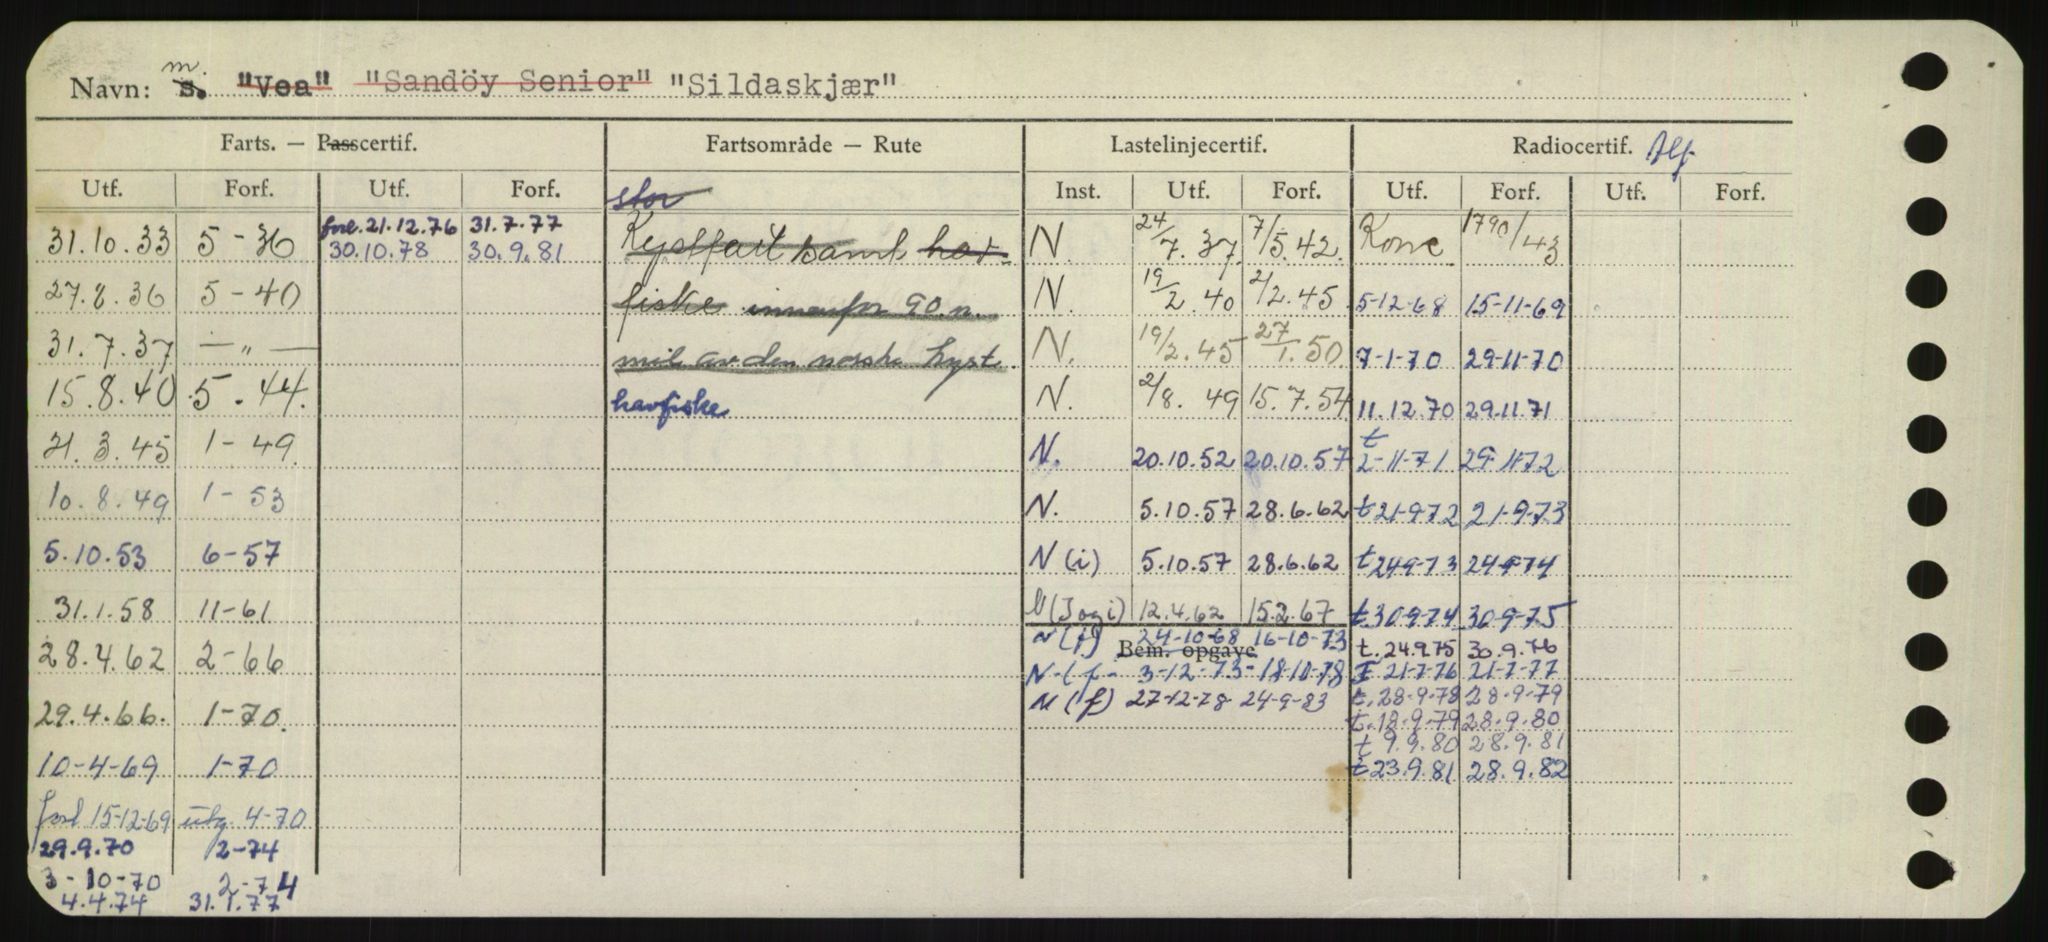 Navn: m. s. "Vea" "Sandöy Senior" "Sildaskjær"
Farts. — Passcertif. Fartsområde — Rute Lastelinjecertif. Radiocertif. Tlf.
Utf. Forf. Utf. Forf. Inst. Utf. Forf. Utf. Forf. Utf. Forf.
stor
31.10.33 5-36 forl. 21.12.76 31.7.77 Kystfart samt hav- N. 24/7.37 7/5.42 Konc 1790/43
30.10.78 30.9.81
27.8.36 5-40 fiske innenfor 90 n. N. 19/2.40 2/2.45 5-12-68 15-11-69
31.7.37 —„— mil av den norske kyst N. 19/2.45 27/1.50 7-1-70 29-11-70
15.8.40 5.44. havfiske N. 2/8.49 15.7.54 11.12.70 29.11.71
21.3.45 1-49 N. 20.10.52 20.10.57 t 2-11-71 29-11-72
10.8.49 1-53 N. 5.10.57 28.6.62 t 21-9-72 21-9-73
5.10.53 6-57 N (i) 5.10.57 28.6.62 t 24-9-73 24-9-74
31.1.58 11-61 N (J og i) 12.4.62 15.2.67 t. 30-9-74 30-9-75
N (f) 24-10-68 16-10-73
Bem. opgave
28.4.62 2-66 t. 24.9.75 30.9.76
N-(f- 3-12-73- 18-10-78 t 21-7-76 21-7-77
N (f) 27-12-78 24-9-83 t. 28-9-78 28-9-79
29.4.66. 1-70. t. 18-9-79 28.9.80
t 9.9.80 28.9.81
10-4-69 1-70 t 23.9.81 28.9.82
forl 15-12-69 utg. 4-70
29.9.70 2-74
3-10-70 2-74
4.4.74 31.1.77